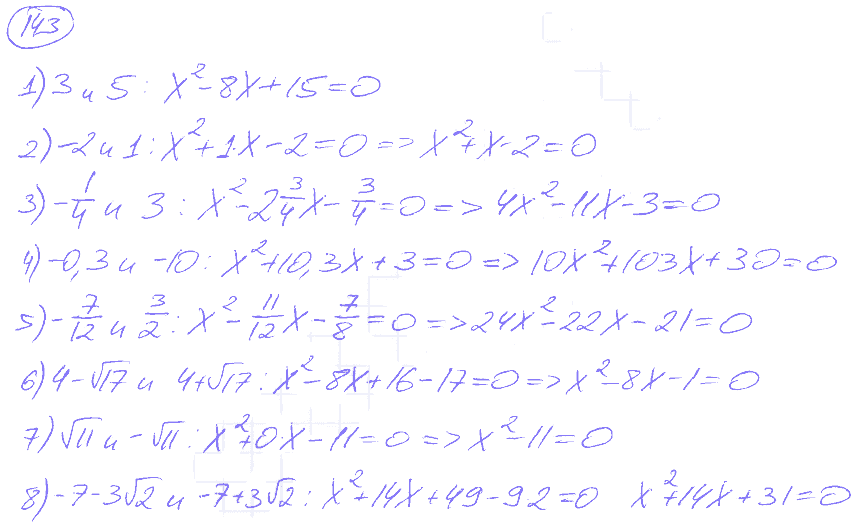 143
1) 3 и 5 : x² - 8x + 15 = 0
2) -2 и 1 : x² + 1·x - 2 = 0 => x² + x - 2 = 0
3) -1/4 и 3 : x² - 2 3/4 x - 3/4 = 0 => 4x² - 11x - 3 = 0
4) -0,3 и -10 : x² + 10,3x + 3 = 0 => 10x² + 103x + 30 = 0
5) -7/12 и 3/2 : x² - 11/12 x - 7/8 = 0 => 24x² - 22x - 21 = 0
6) 4 - √17 и 4 + √17 : x² - 8x + 16 - 17 = 0 => x² - 8x - 1 = 0
7) √11 и -√11 : x² + 0x - 11 = 0 => x² - 11 = 0
8) -7 - 3√2 и -7 + 3√2 : x² + 14x + 49 - 9·2 = 0 x² + 14x + 31 = 0